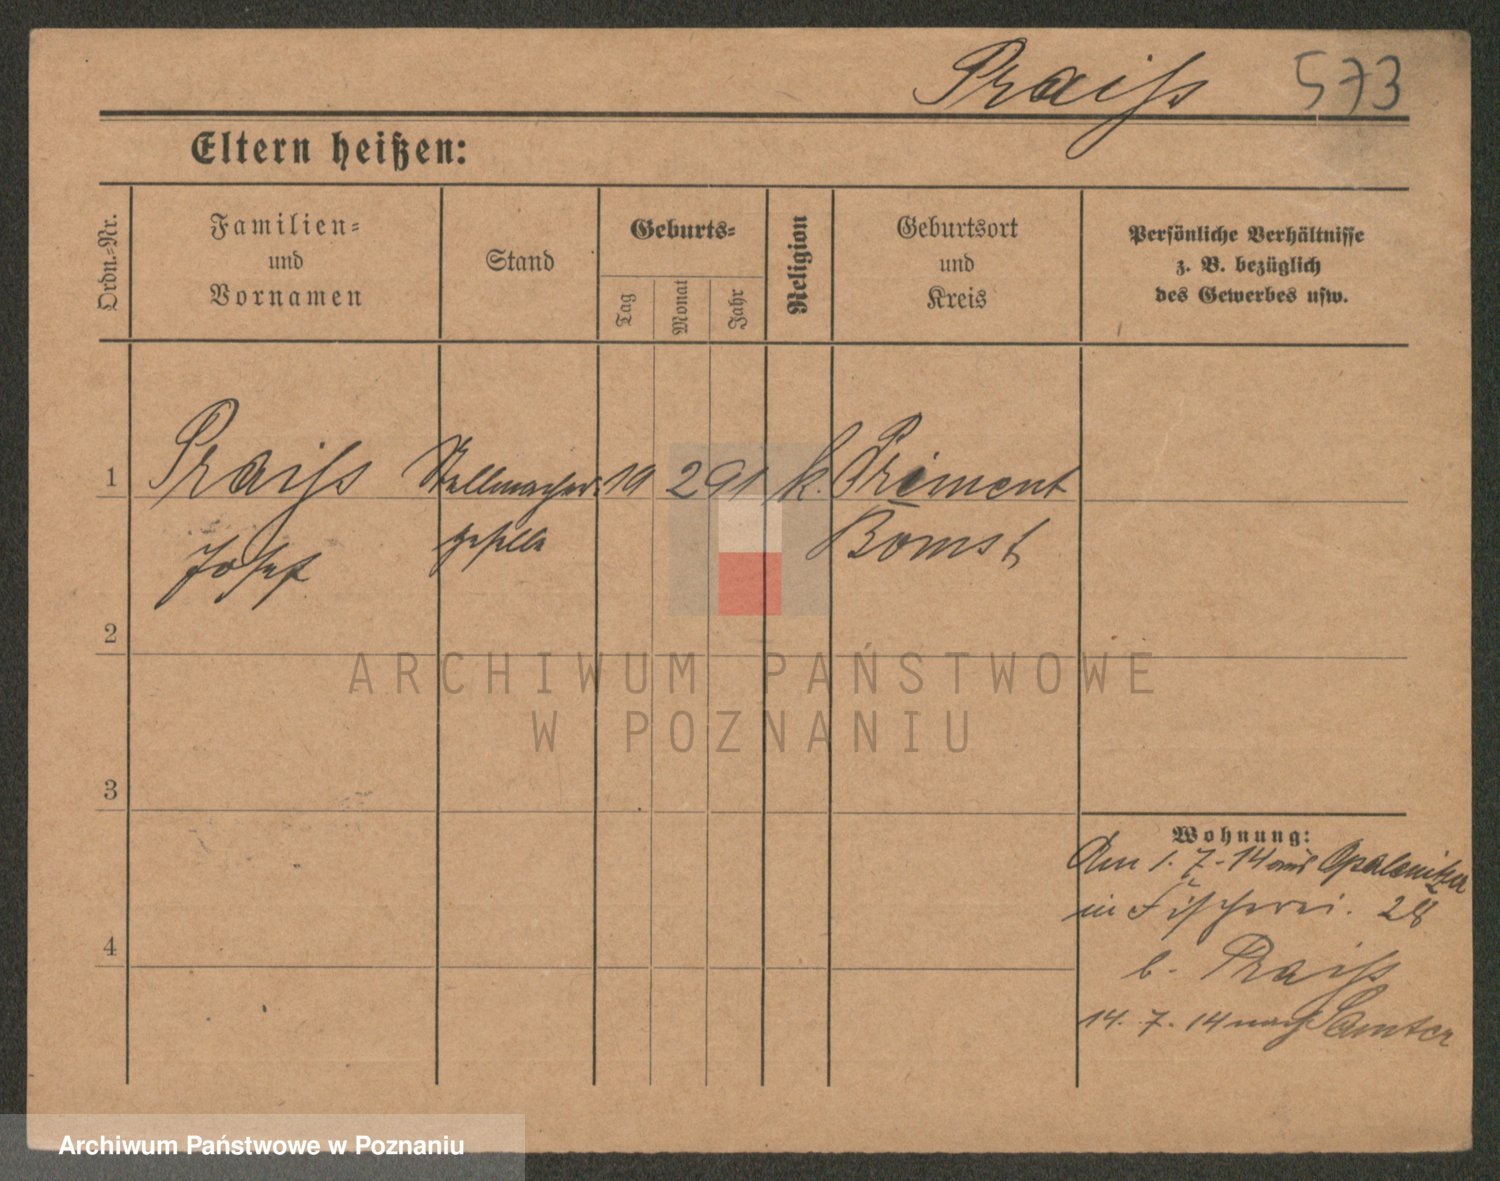 Praiss 573
Eltern heißen:
Ordn.-Nr.
Familien-
und
Vornamen
Stand
Geburts-
Tag
Monat
Jahr
Religion
Geburtsort
und
Kreis
Persönliche Verhältnisse
z. B. bezüglich
des Gewerbes usw.
1 Praiss Stellmacher- 19 2 91 k. Priment
Josef geselle Bomst
2
3
4
Wohnung:
Am 1. 7. 14 aus Opalenitza
in Fischerei. 28
b. Praiss
14. 7. 14 nach Samter
ARCHIWUM PAŃSTWOWE
W POZNANIU
Archiwum Państwowe w Poznaniu